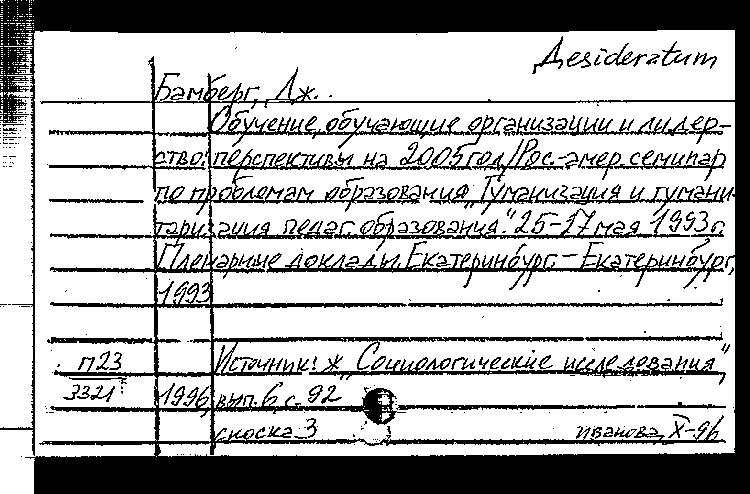 Desideratum
Бамберг, Дж.
Обучение, обучающие организации и лидер-
ство: перспективы на 2005 год // Рос.-амер. семинар
по проблемам образования „Гуманизация и гумани-
таризация педаг. образования". 25-17 мая 1993 г.
Пленарные доклады. Екатеринбург. – Екатеринбург,
1993
П23 Источник: ж. „Социологические исследования",
3321 1996, вып. 6, с. 92
сноска 3 Иванова, X-96